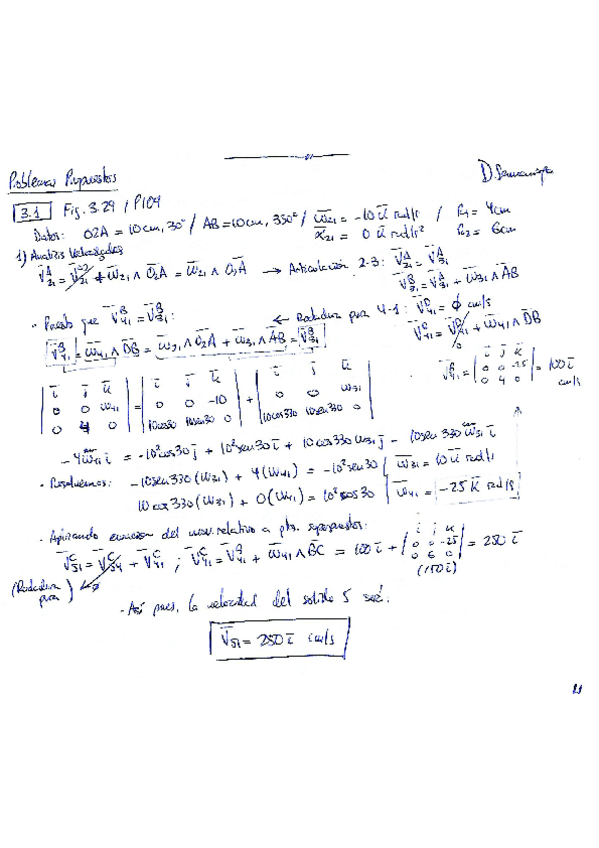 Problemas Propuestos
3.1 Fig. 3.29 / P104
Datos: O2A = 10cm, 30° / AB = 10cm, 330° / ω̄21 = -10 ū rad/s / R1 = 4cm
ᾱ21 = 0 ū rad/s² R2 = 6cm
1) Analisis Velocidades
V̄A21 = V̄O221 + ω̄21 ∧ O2A = ω̄21 ∧ O2A → Articulación 2-3: V̄A21 = V̄A31
V̄B31 = V̄A31 + ω̄31 ∧ AB
· Puesto que V̄B41 = V̄B31: ← Rodadura pura 4-1: V̄D41 = ∅ cm/s
V̄B41 = ω̄41 ∧ DB = ω̄21 ∧ O2A + ω̄31 ∧ AB = V̄B31
V̄B41 = V̄D41 + ω̄41 ∧ DB
| ī j̄ k̄ | | ī j̄ k̄ | | ī j̄ k̄ |
| 0 0 ω41 | = | 0 0 -10 | + | 0 0 ω31 |
| 0 4 0 | | 10cos30 10sen30 0 | | 10cos330 10sen330 0 |
V̄B41 = | i j k | 0 0 -25 | 0 4 0 | = 100 ī cm/s
-4ω41 ī = -10²cos30 j̄ + 10²sen30 ī + 10cos330 ω31 j̄ - 10sen330 ω31 ī
· Resolvemos: -10sen330(ω31) + 4(ω41) = -10²sen30 ω̄31 = 10 ū rad/s
10cos330(ω31) + 0(ω41) = 10²cos30 ω̄41 = -25 k̄ rad/s
· Aplicando ecuación del mov. relativo a pts. superpuestos:
V̄C51 = V̄C54 + V̄C41 ; V̄C41 = V̄B41 + ω̄41 ∧ BC = 100 ī + | i j k | 0 0 -25 | 0 6 0 | = 250 ī
(Rodadura pura) (150 ī)
- Así pues, la velocidad del sólido 5 será:
V̄51 = 250 ī cm/s